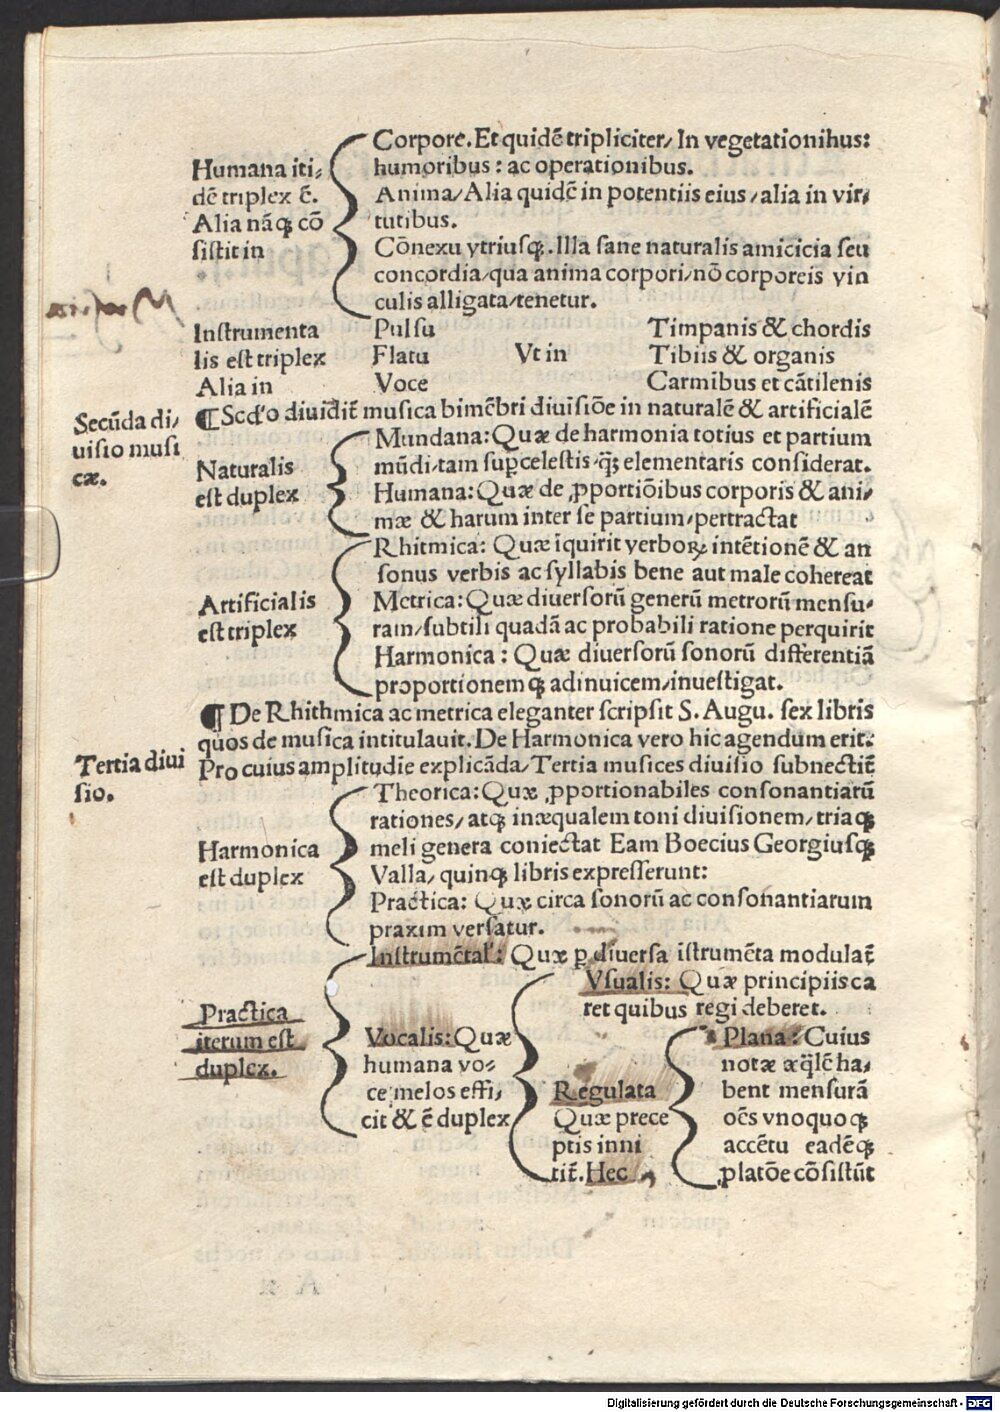 Humana iti⸗
dē triplex ē.
Alia nāꝗ cō
sistit in
Corpore. Et quidē tripliciter/ In vegetationihus:
humoribus: ac operationibus.
Anima/Alia quidē in potentiis eius/alia in vir⸗
tutibus.
Cōnexu vtriusꝗ. Illa sane naturalis amicicia seu
concordia/qua anima corpori/nō corporeis vin
culis alligata/tenetur.
Instrumenta
lis est triplex
Alia in
Pulsu
Flatu
Voce
Vt in
Timpanis & chordis
Tibiis & organis
Carmībus et cātilenis
Secūda di⸗
uisio musi
cæ.
¶Scd'o diuidit̄ musica bimēbri diuisiōe in naturalē & artificialē
Naturalis
est duplex
Mundana: Quæ de harmonia totius et partium
mūdi/tam suꝑcelestis/ꝗ̄ꝫ elementaris considerat.
Humana: Quæ de ꝓportiōibus corporis & ani⸗
mæ & harum inter se partium/pertractat
Artificialis
est triplex
Rhitmica: Quæ īquirit verboꝝ intētionē & an
sonus verbis ac syllabis bene aut male cohereat
Metrica: Quæ diuersorū generū metrorū mensu⸗
ram/subtili quadā ac probabili ratione perquirit
Harmonica: Quæ diuersorū sonorū differentiā
proportionemꝗ adinuicem/inuestigat.
¶ De Rhithmica ac metrica eleganter scripsit S. Augu. sex libris
quos de musica intitulauit. De Harmonica vero hic agendum erit:
Tertia diui
sio.
Pro cuius amplitudīe explicāda/Tertia musices diuisio subnectit̄
Harmonica
est duplex
Theorica: Quæ ꝓportionabiles consonantiarū
rationes/atꝗ inæqualem toni diuisionem/triaꝗ
meli genera coniectat Eam Boecius Georgiusꝗ
Valla/quinꝗ libris expresserunt:
Practica: Quæ circa sonorū ac consonantiarum
praxim versatur.
Practica
iterum est
duplex.
Instrumētal': Quæ ꝑ diuersa īstrumēta modulat̄
Vocalis: Quæ
humana vo⸗
ce melos effi⸗
cit & ē duplex
Vsualis: Quæ principiis ca
ret quibus regi deberet.
Regulata
Quæ prece
ptis inni
tit̄. Hec
Plana: Cuius
notæ æq̄lē ha⸗
bent mensurā
oēs vnoquoꝗ
accētu eadēꝗ
platōe cōsistūt
Digitalisierung gefördert durch die Deutsche Forschungsgemeinschaft - DFG